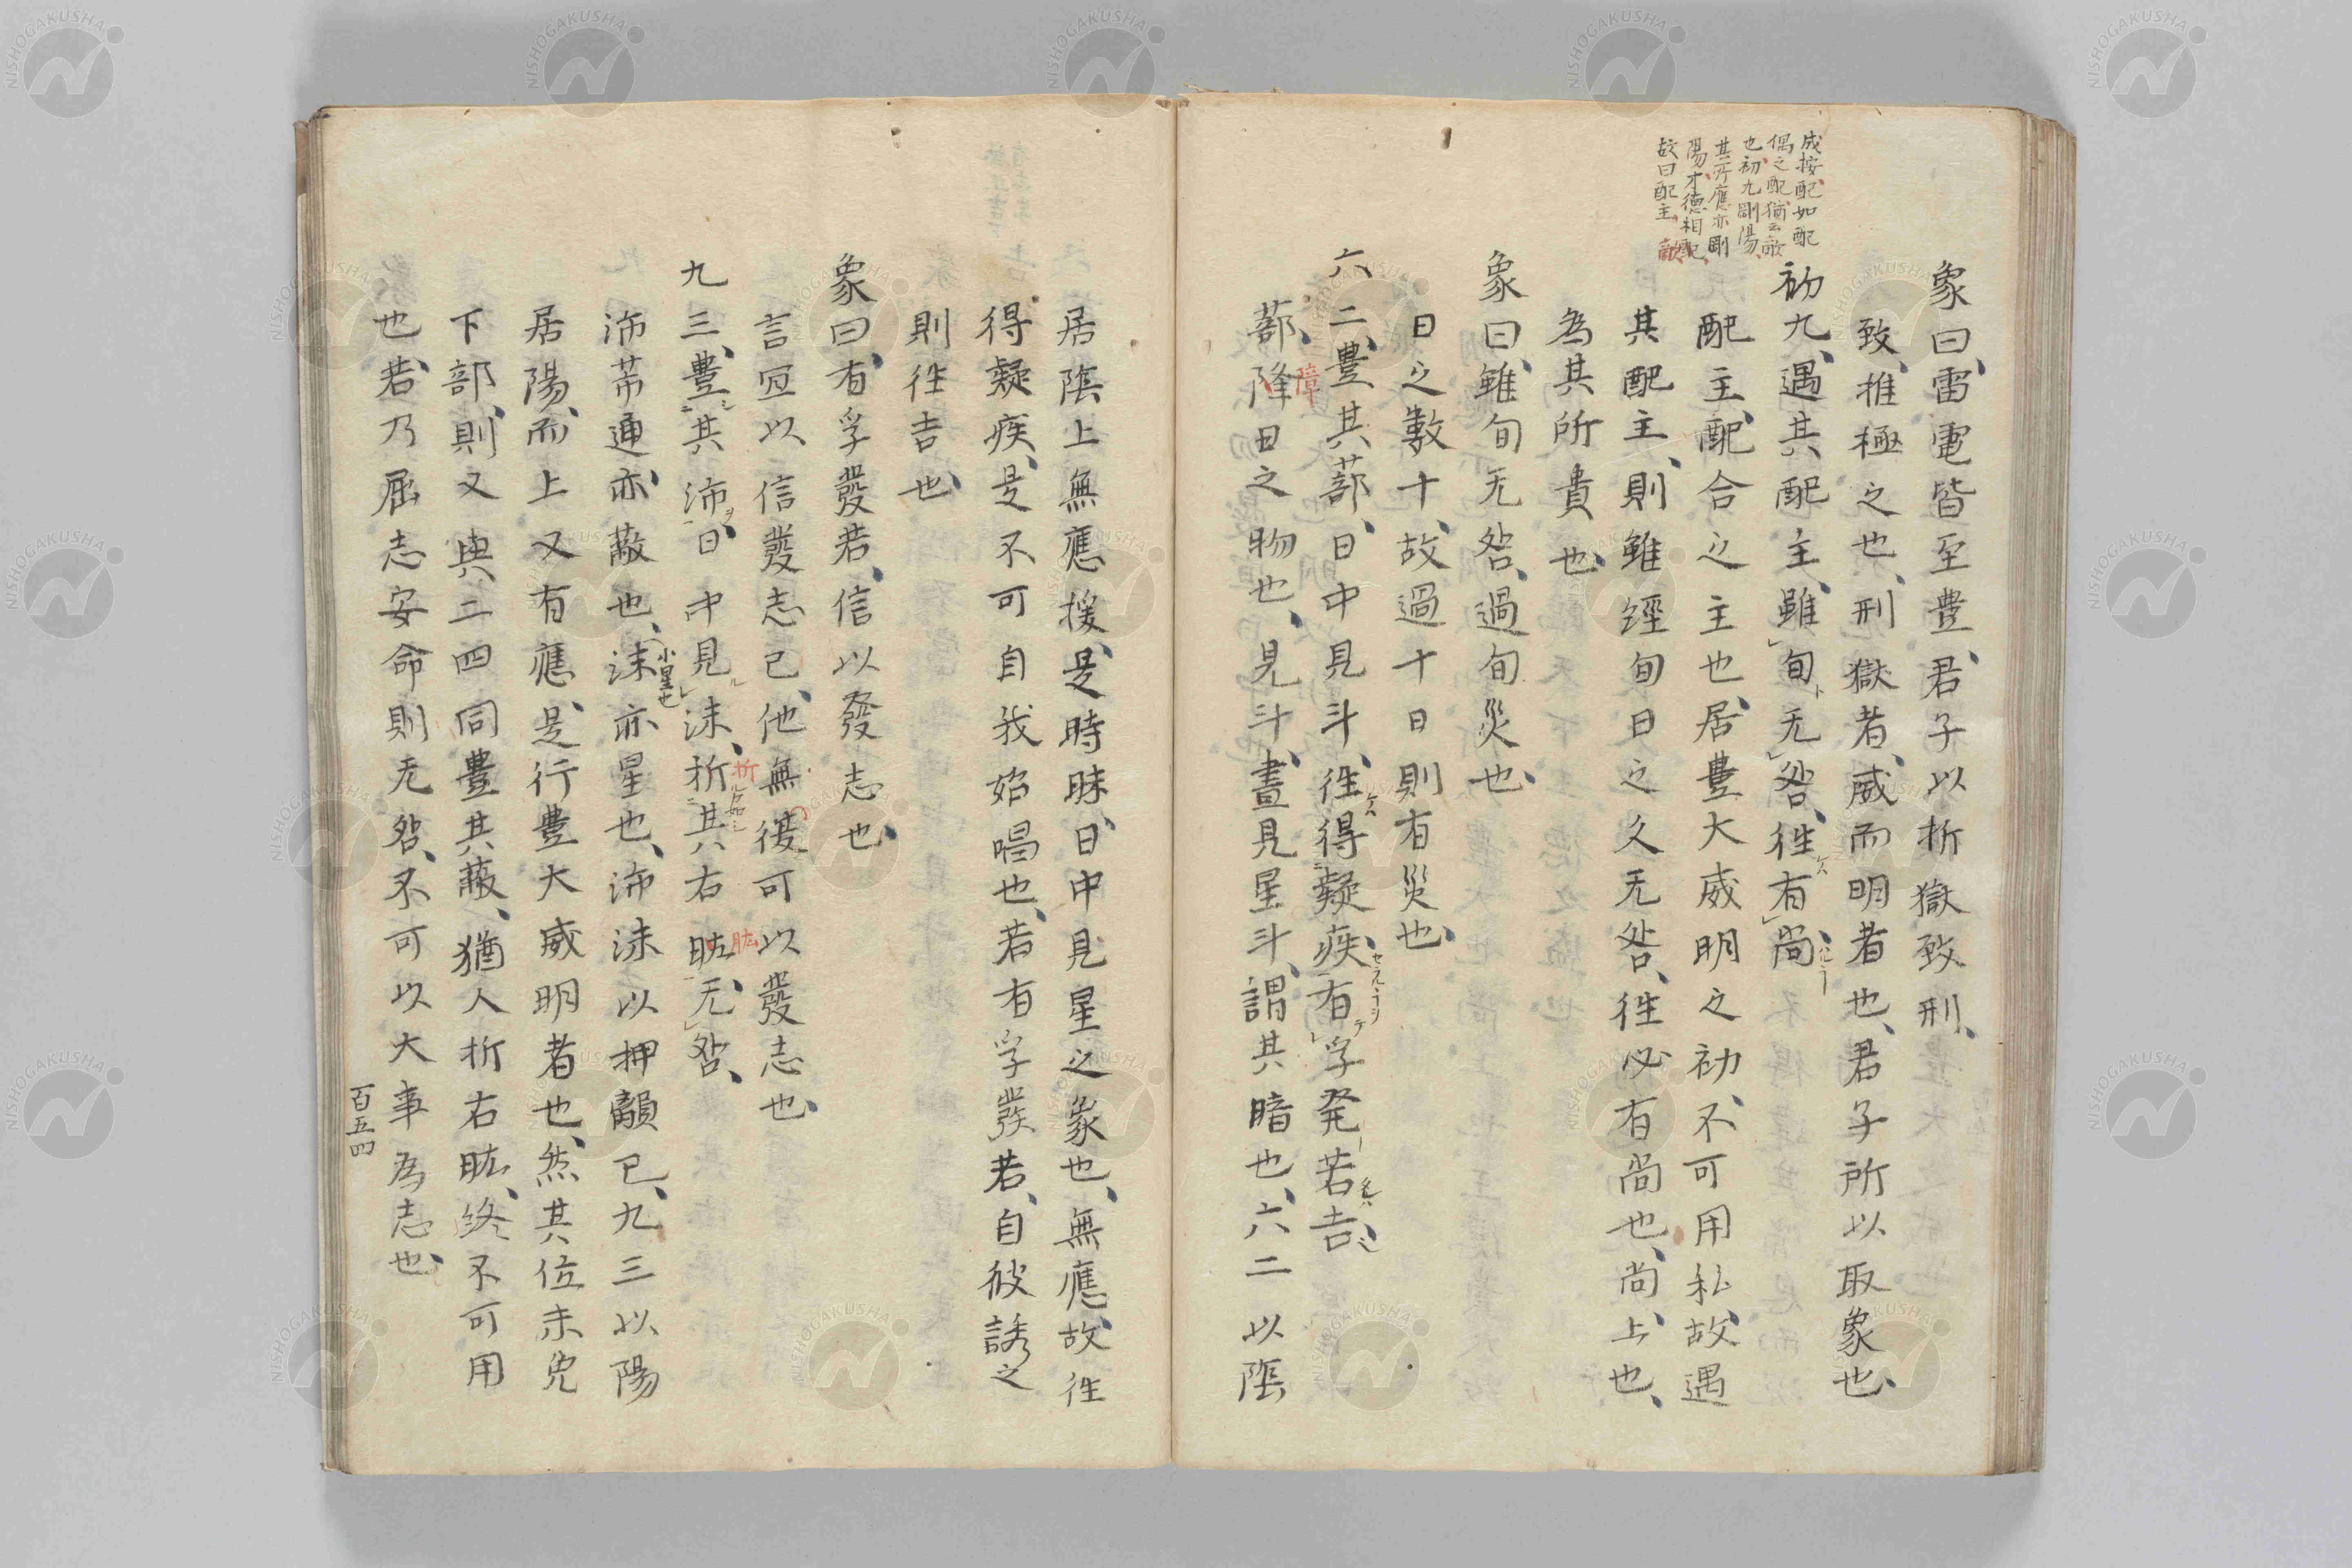 成按、配如配
偶之配、猶云敵
也、初九剛陽、
其所應亦剛
陽、才德相配、
故曰配主、敵
象曰、雷電皆至豊、君子以折獄致刑、
致、推極之也、刑獄者、威而明者也、君子所以取象也、
初九、遇其配主、雖旬无咎、徃有尚、
配主、配合之主也、居豊大威明之初、不可用私、故遇
其配主、則雖經旬日之久无咎、徃必有尚也、尚、上也、
為其所貴也、
象曰、雖旬无咎、過旬災也、
日之數十、故過十日則有災也、
六二、豊其蔀、日中見斗、徃得疑疾、有孚発若吉、
障
蔀、降日之物也、見斗、晝見星斗、謂其暗也、六二以陰
居陰上無應援、是時昧、日中見星之象也、無應、故徃
得疑疾、是不可自我始唱也、若有孚發若、自彼誘之
則徃吉也、
象曰、有孚發若、信以發志也、
言宜以信發志已、他無復可以發志也、
九三、豊其沛、日中見沬、折其右肱、无咎、
折
肱
沛芾通、亦蔽也、沬亦星也、沛沬以押韻已、九三以陽
小星也
居陽、而上又有應、是行豊大威明者也、然其位未免
下部、則又與二四同豊其蔽、猶人折右肱、終不可用
也、若乃屈志安命則无咎、不可以大事為志也、
百五四
NISHOGAKUSHA